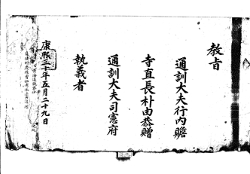 教旨
通訓大夫行內贍
寺直長朴由贈
通訓大夫司憲府
執義者
康熙年五月二十九日